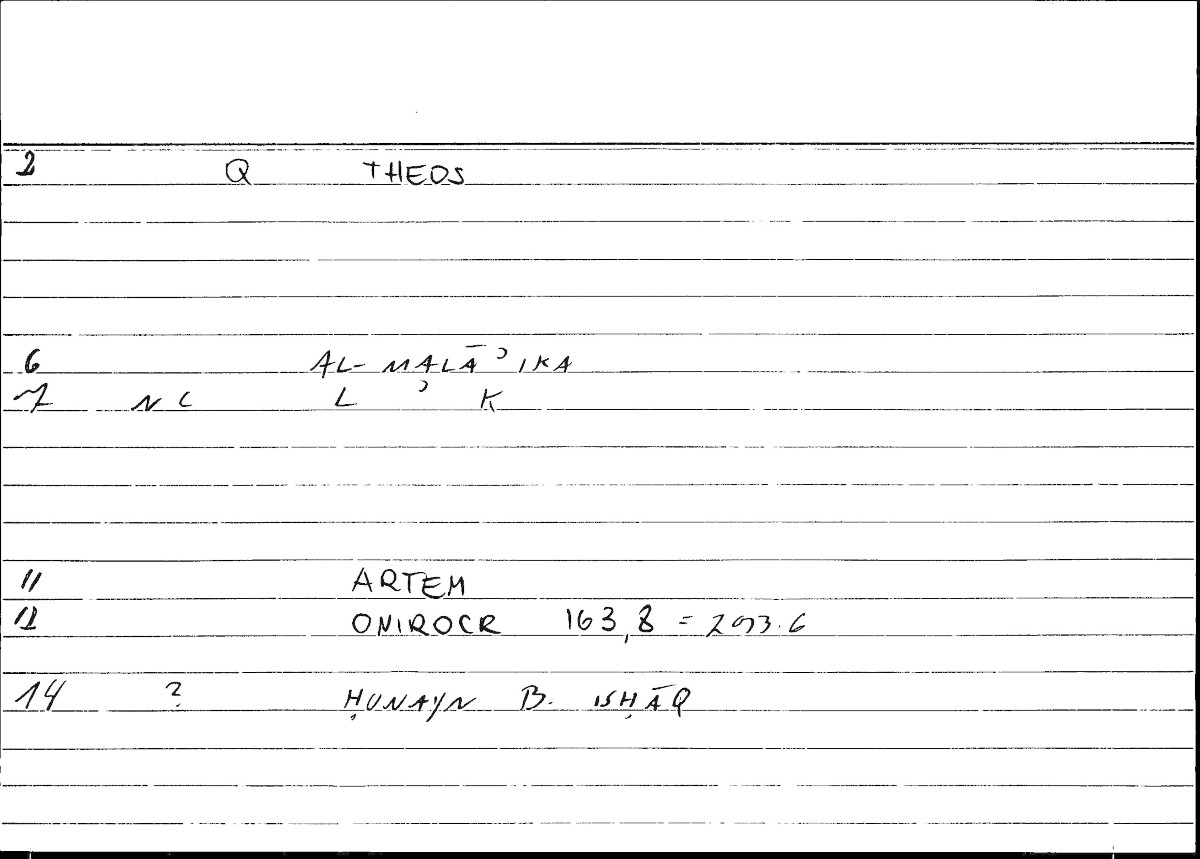 2 Q THEOS
6 AL-MALĀʾIKA
7 NC L ʾ K
11 ARTEM
12 ONIROCR 163,8 = 293.6
14 ? ḤUNAYN B. ISḤĀQ